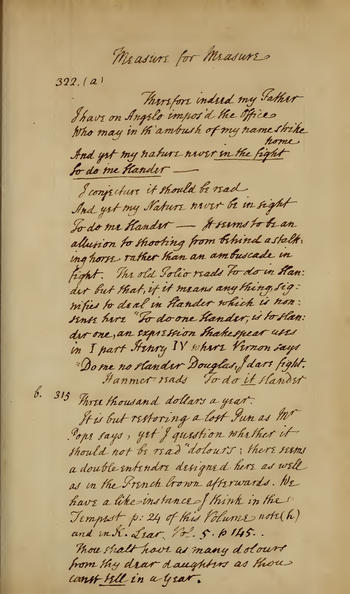 Measure for Measure
322. (a)
Therefore indeed my Father
I have on Angelo impos'd the Office
Who may in th' ambush of my name strike
home
And yet my nature never in the fight
To do me slander —
I conjecture it should be read
And yet my Nature never be in sight
To do me slander — It seems to be an
allusion to shooting from behind a stalk-
ing horse rather than an ambuscade in
fight. The old Folio reads To do in slan-
der but that, if it means any thing, sig-
nifies to deal in slander which is non-
sense here "To do one slander, is to slan-
der one, an expression Shakespear uses
in I part Henry IV where Vernon says
"Do me no slander Douglas, I dare fight.
Hanmer reads To do it slander
b. 315 Three thousand dollars a year.
It is but restoring a lost Pun as Mr
Pope says, yet I question whether it
should not be read "dolours; there seems
a double entendre designed here as well
as in the French Crown afterwards. We
have a like instance I think in the
Tempest p: 24 of this Volume note (h)
and in K. Lear. Vol. 5. p 145..
Thou shalt have as many dolours
from thy dear daughters as thou
canst tell in a Year.